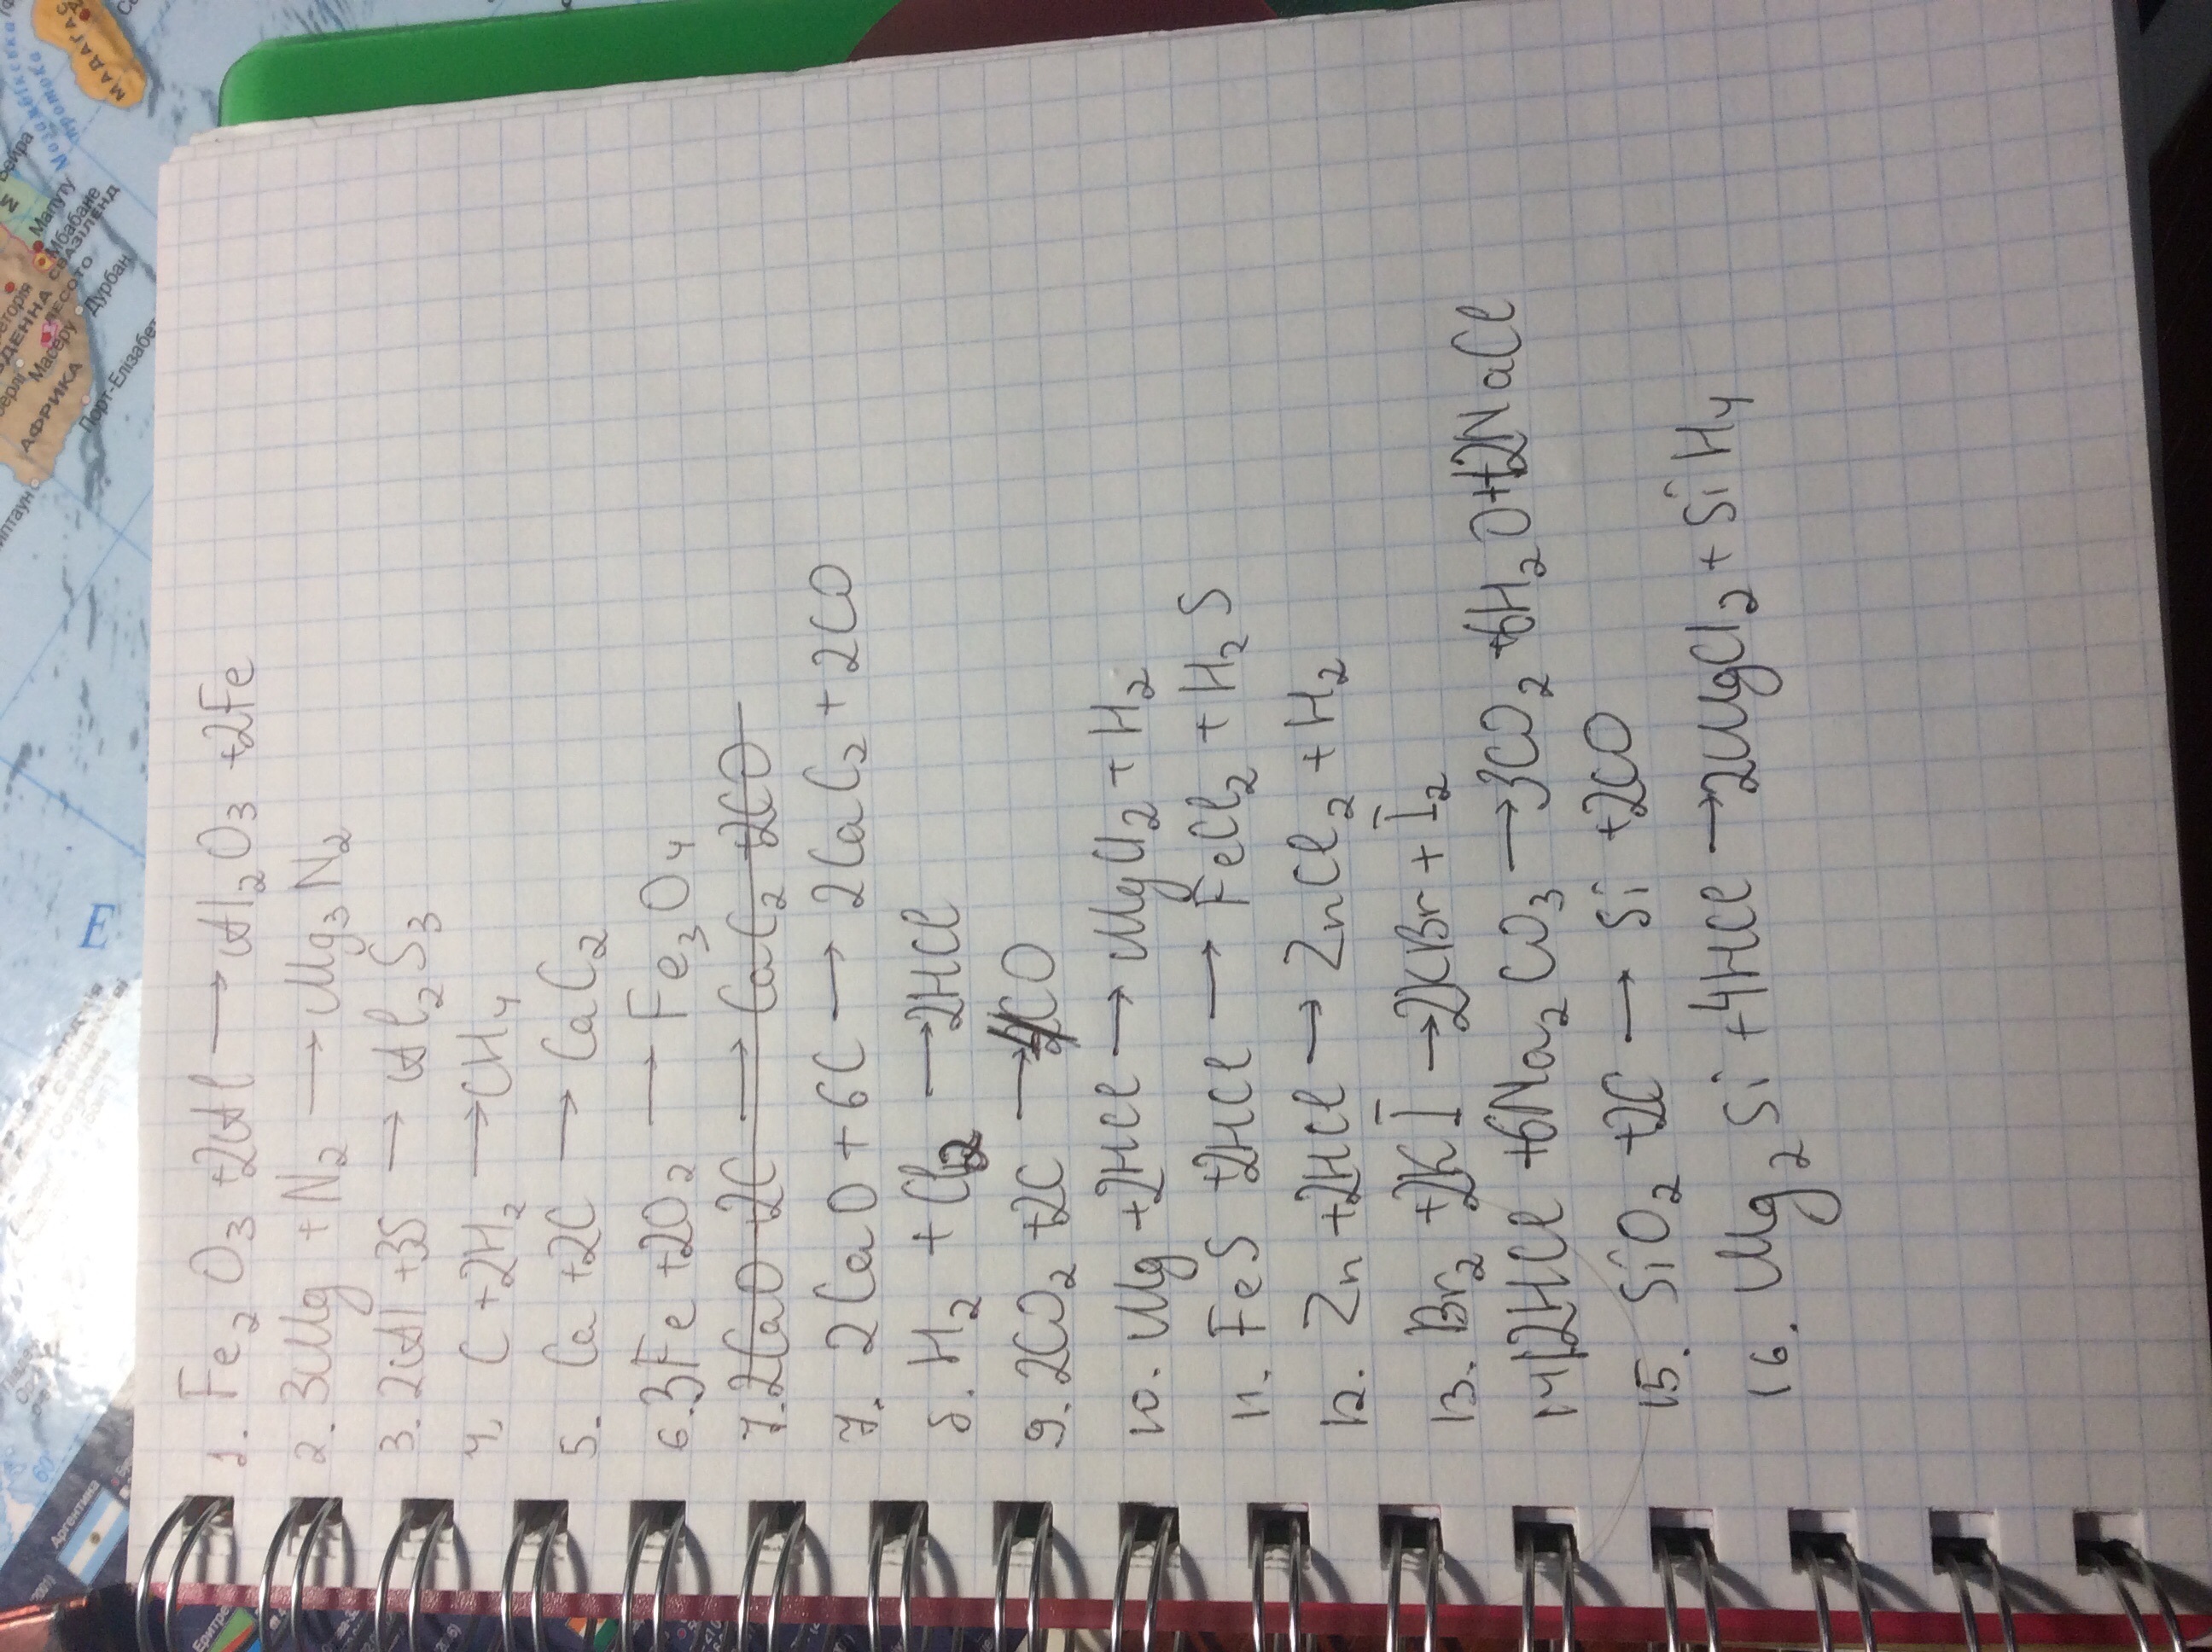 1. Fe2O3 +2Al → Al2O3 +2Fe
2. 3Mg +N2 → Mg3N2
3. 2Al +3S → Al2S3
4. C +2H2 → CH4
5. Ca +2C → CaC2
6. 3Fe +2O2 → Fe3O4
7. 2CaO +2C → CaC2 +2CO
7. 2CaO + 6C → 2CaC2 + 2CO
8. H2 + Cl2 → 2HCl
9. 2CO2 +2C → CO
10. Mg +2HCl → MgCl2 + H2
11. FeS +2HCl → FeCl2 + H2S
12. Zn +2HCl → ZnCl2 + H2
13. Br2 +2KI → 2KBr + I2
14 12HCl +6Na2CO3 → 3CO2 +6H2O+12NaCl
15. SiO2 +2C → Si +2CO
16. Mg2Si +4HCl → 2MgCl2 + SiH4
МАДАГА
Мапуту
Мбабане
СВАЗІЛЕНД
ЛЕСОТО
Дурбан
Масеру
АФРИКА
Порт-Елізабет
E
60
Аргентина